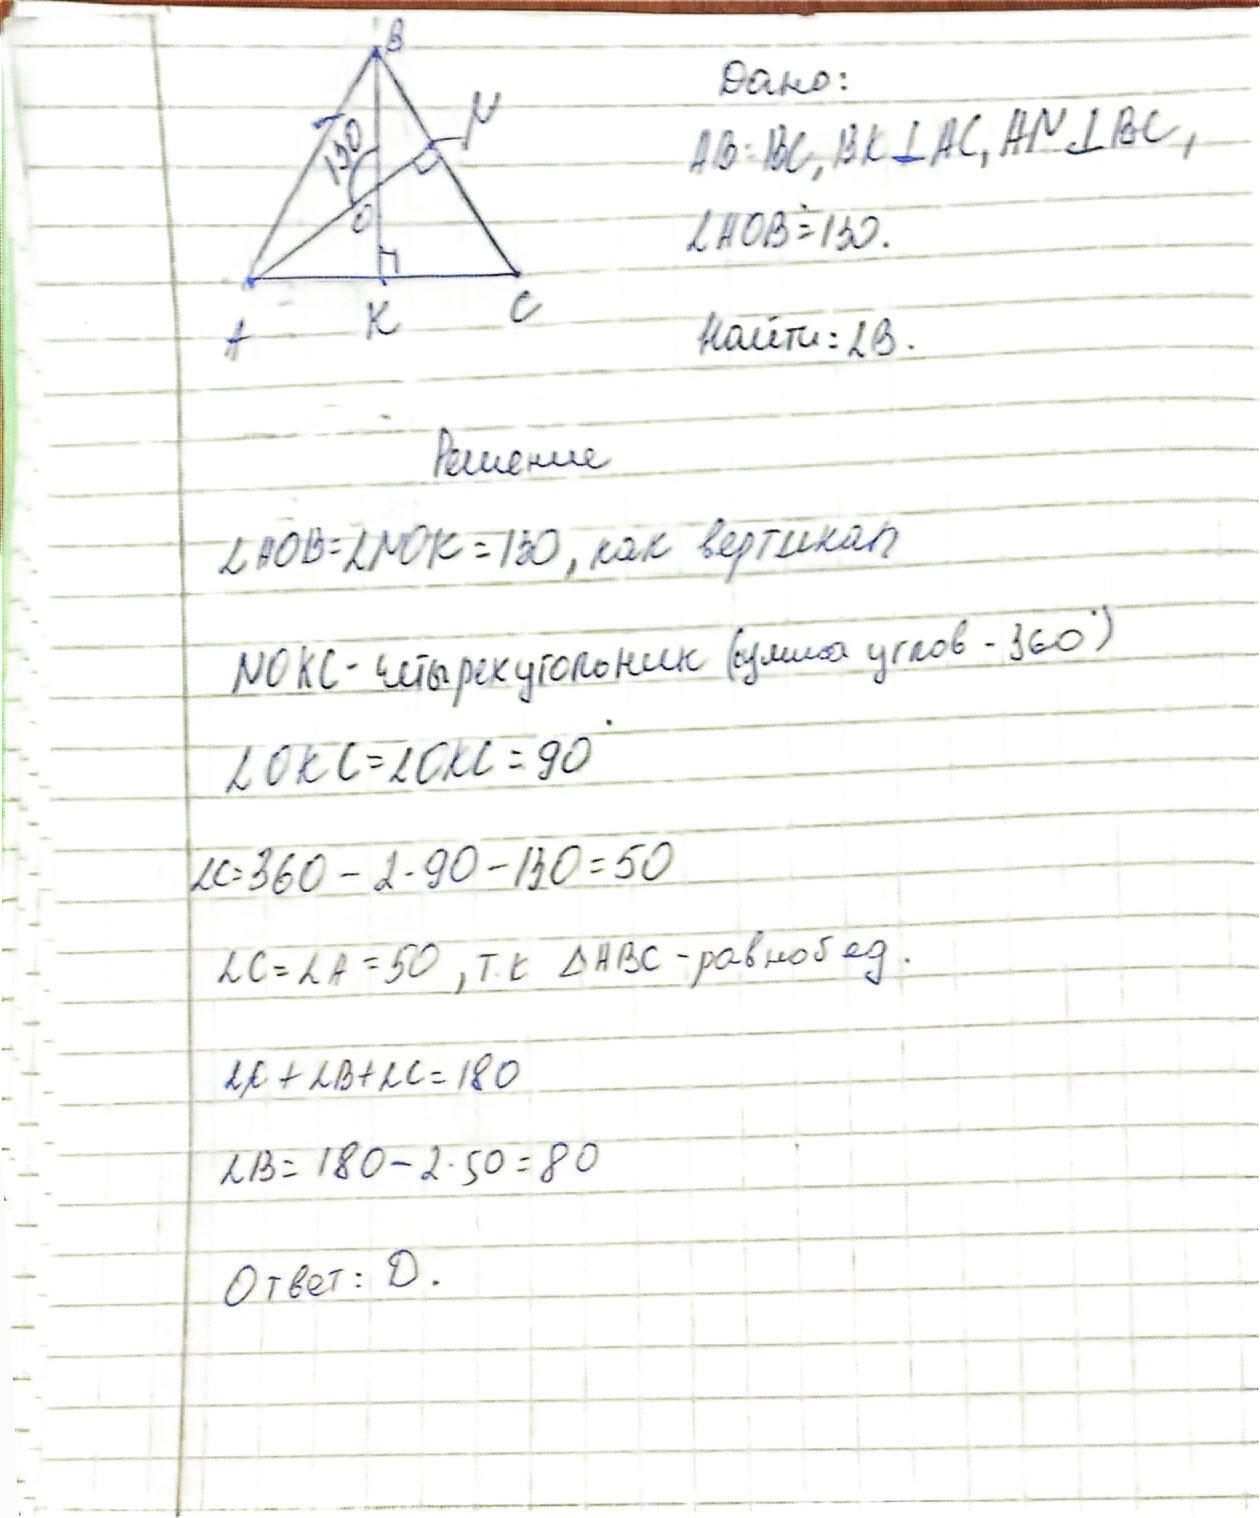 B
N
130
O
A
K
C
Дано:
AB=BC, BK⊥AC, AN⊥BC,
∠AOB=130.
Найти: ∠B.
Решение
∠AOB=∠NOK=130, как вертикал
NOKC - четырехугольник (сумма углов - 360°)
∠OKC=∠CKC=90
∠C=360-2·90-130=50
∠C=∠A=50, т.к ΔABC - равнобед.
∠A+∠B+∠C=180
∠B=180-2·50=80
Ответ: D.